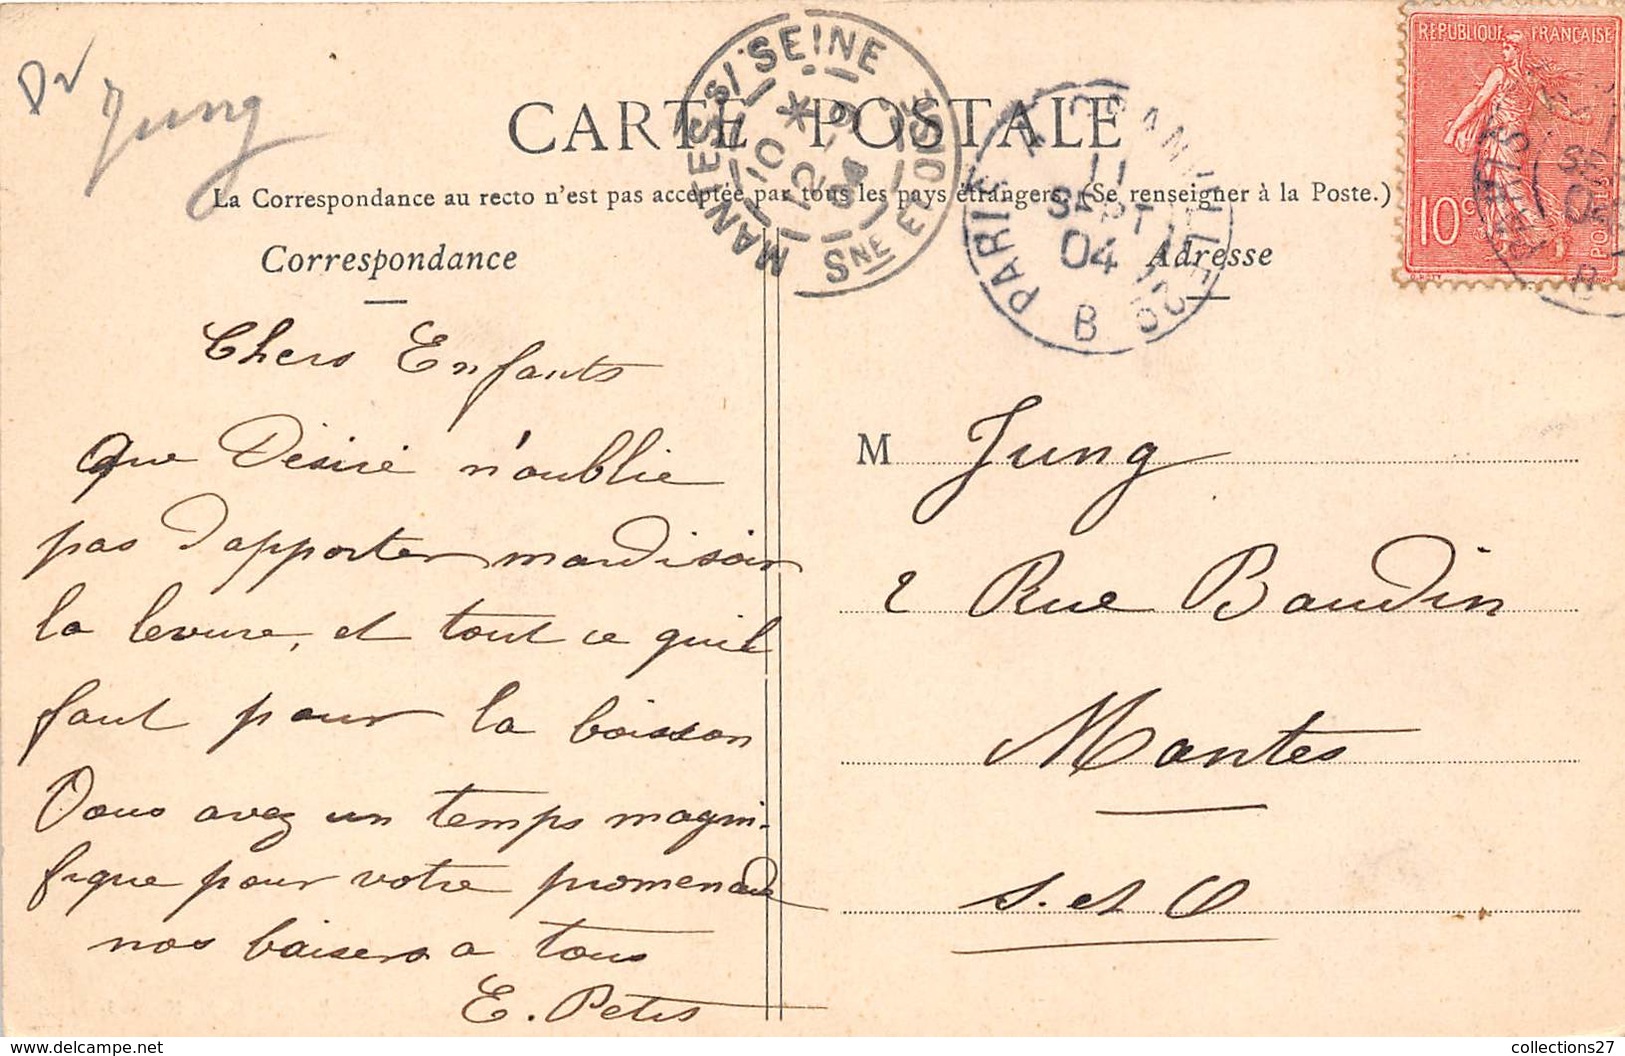 Dr Jung
CARTE POSTALE
La Correspondance au recto n'est pas acceptée par tous les pays étrangers. (Se renseigner à la Poste.)
Correspondance
Chers Enfants
que Désiré n'oublie
pas d'apporter mardi soir
la levure, et tout ce quil
faut pour la boisson
Vous avez un temps magni-
fique pour votre promenade
nos baisers a tous
E. Petit
Adresse
M Jung
2 Rue Baudin
Mantes
S. et O
MANTES S/ SEINE
SNE ET OISE
10 *
12 - 9
04
PARIS
11
SEPT
04
B
REPUBLIQUE FRANÇAISE
10c
POSTES
PARIS
collections27
https://www.delcampe.net